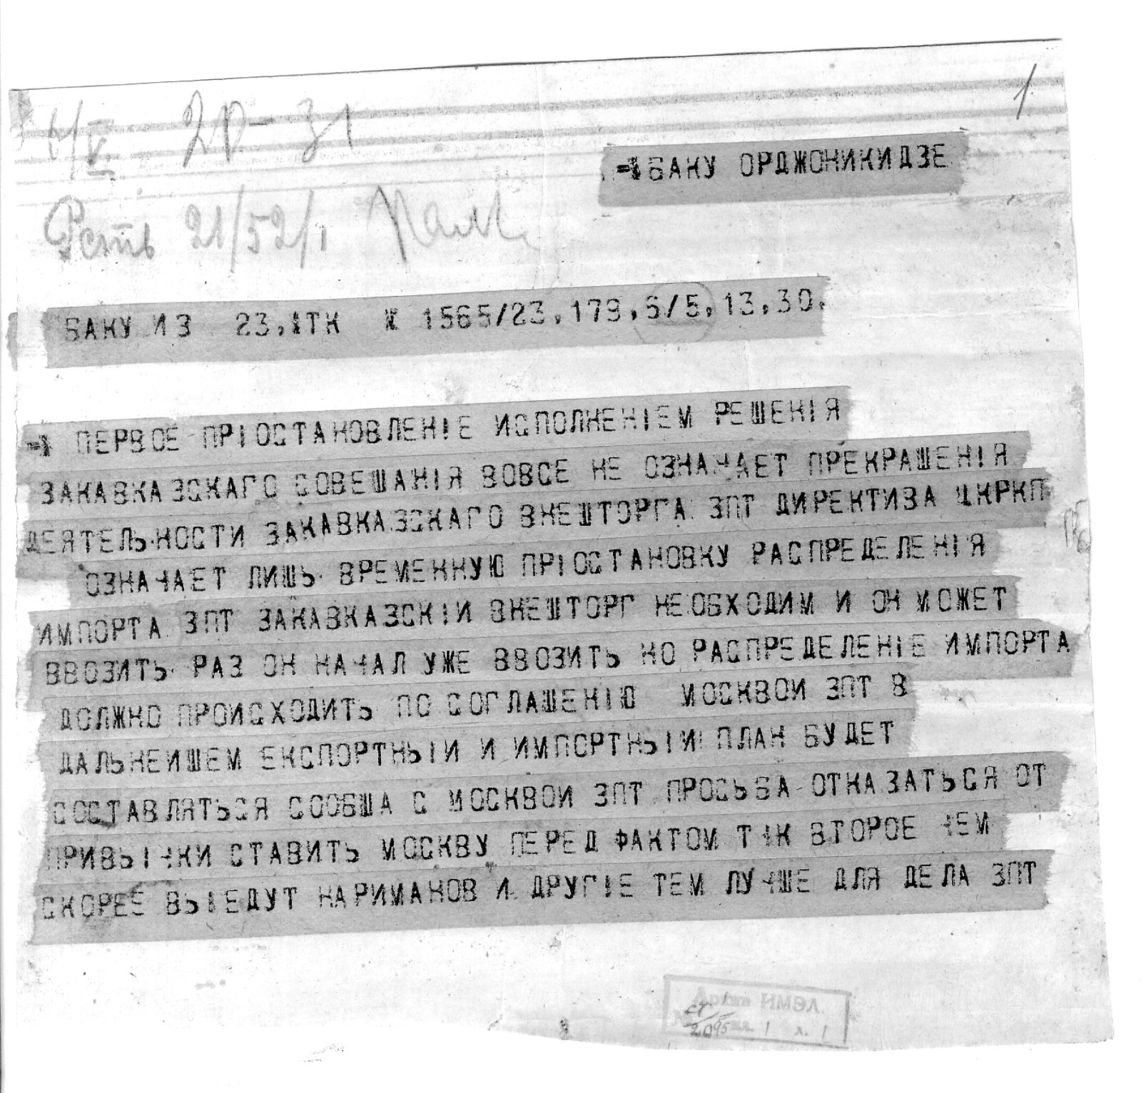 1
6/V. 20-31
БАКУ ОРДЖОНИКИДЗЕ
21/52/1
БАКУ ИЗ 23, 1ТК Ж 1565/23, 179, 6/5, 13, 30,
ПЕРВОЕ ПРІОСТАНОВЛЕНІЕ ИСПОЛНЕНІЕМ РЕШЕНІЯ
ЗАКАВКАЗСКАГО СОВЕШАНІЯ ВОВСЕ НЕ ОЗНАЧАЕТ ПРЕКРАШЕНІЯ
ДЕЯТЕЛЬНОСТИ ЗАКАВКАЗСКАГО ВНЕШТОРГА ЗПТ ДИРЕКТИВА ЦКРКП
ОЗНАЧАЕТ ЛИШЬ ВРЕМЕННУЮ ПРІОСТАНОВКУ РАСПРЕДЕЛЕНІЯ
ИМПОРТА ЗПТ ЗАКАВКАЗСКІИ ВНЕШТОРГ НЕОБХОДИМ И ОН МОЖЕТ
ВВОЗИТЬ РАЗ ОН НАЧАЛ УЖЕ ВВОЗИТЬ НО РАСПРЕДЕЛЕНІЕ ИМПОРТА
ДОЛЖНО ПРОИСХОДИТЬ ПО СОГЛАШЕНІЮ МОСКВОИ ЗПТ В
ДАЛЬНЕИШЕМ ЕКСПОРТНЫИ И ИМПОРТНЫИ ПЛАН БУДЕТ
СОСТАВЛЯТЬСЯ СООБША С МОСКВОИ ЗПТ ПРОСЬБА ОТКАЗАТЬСЯ ОТ
ПРИВЫЧКИ СТАВИТЬ МОСКВУ ПЕРЕД ФАКТОМ ТЧК ВТОРОЕ ЧЕМ
СКОРЕЕ ВЫЕДУТ НАРИМАНОВ И ДРУГІЕ ТЕМ ЛУЧШЕ ДЛЯ ДЕЛА ЗПТ
Архив ИМЭЛ